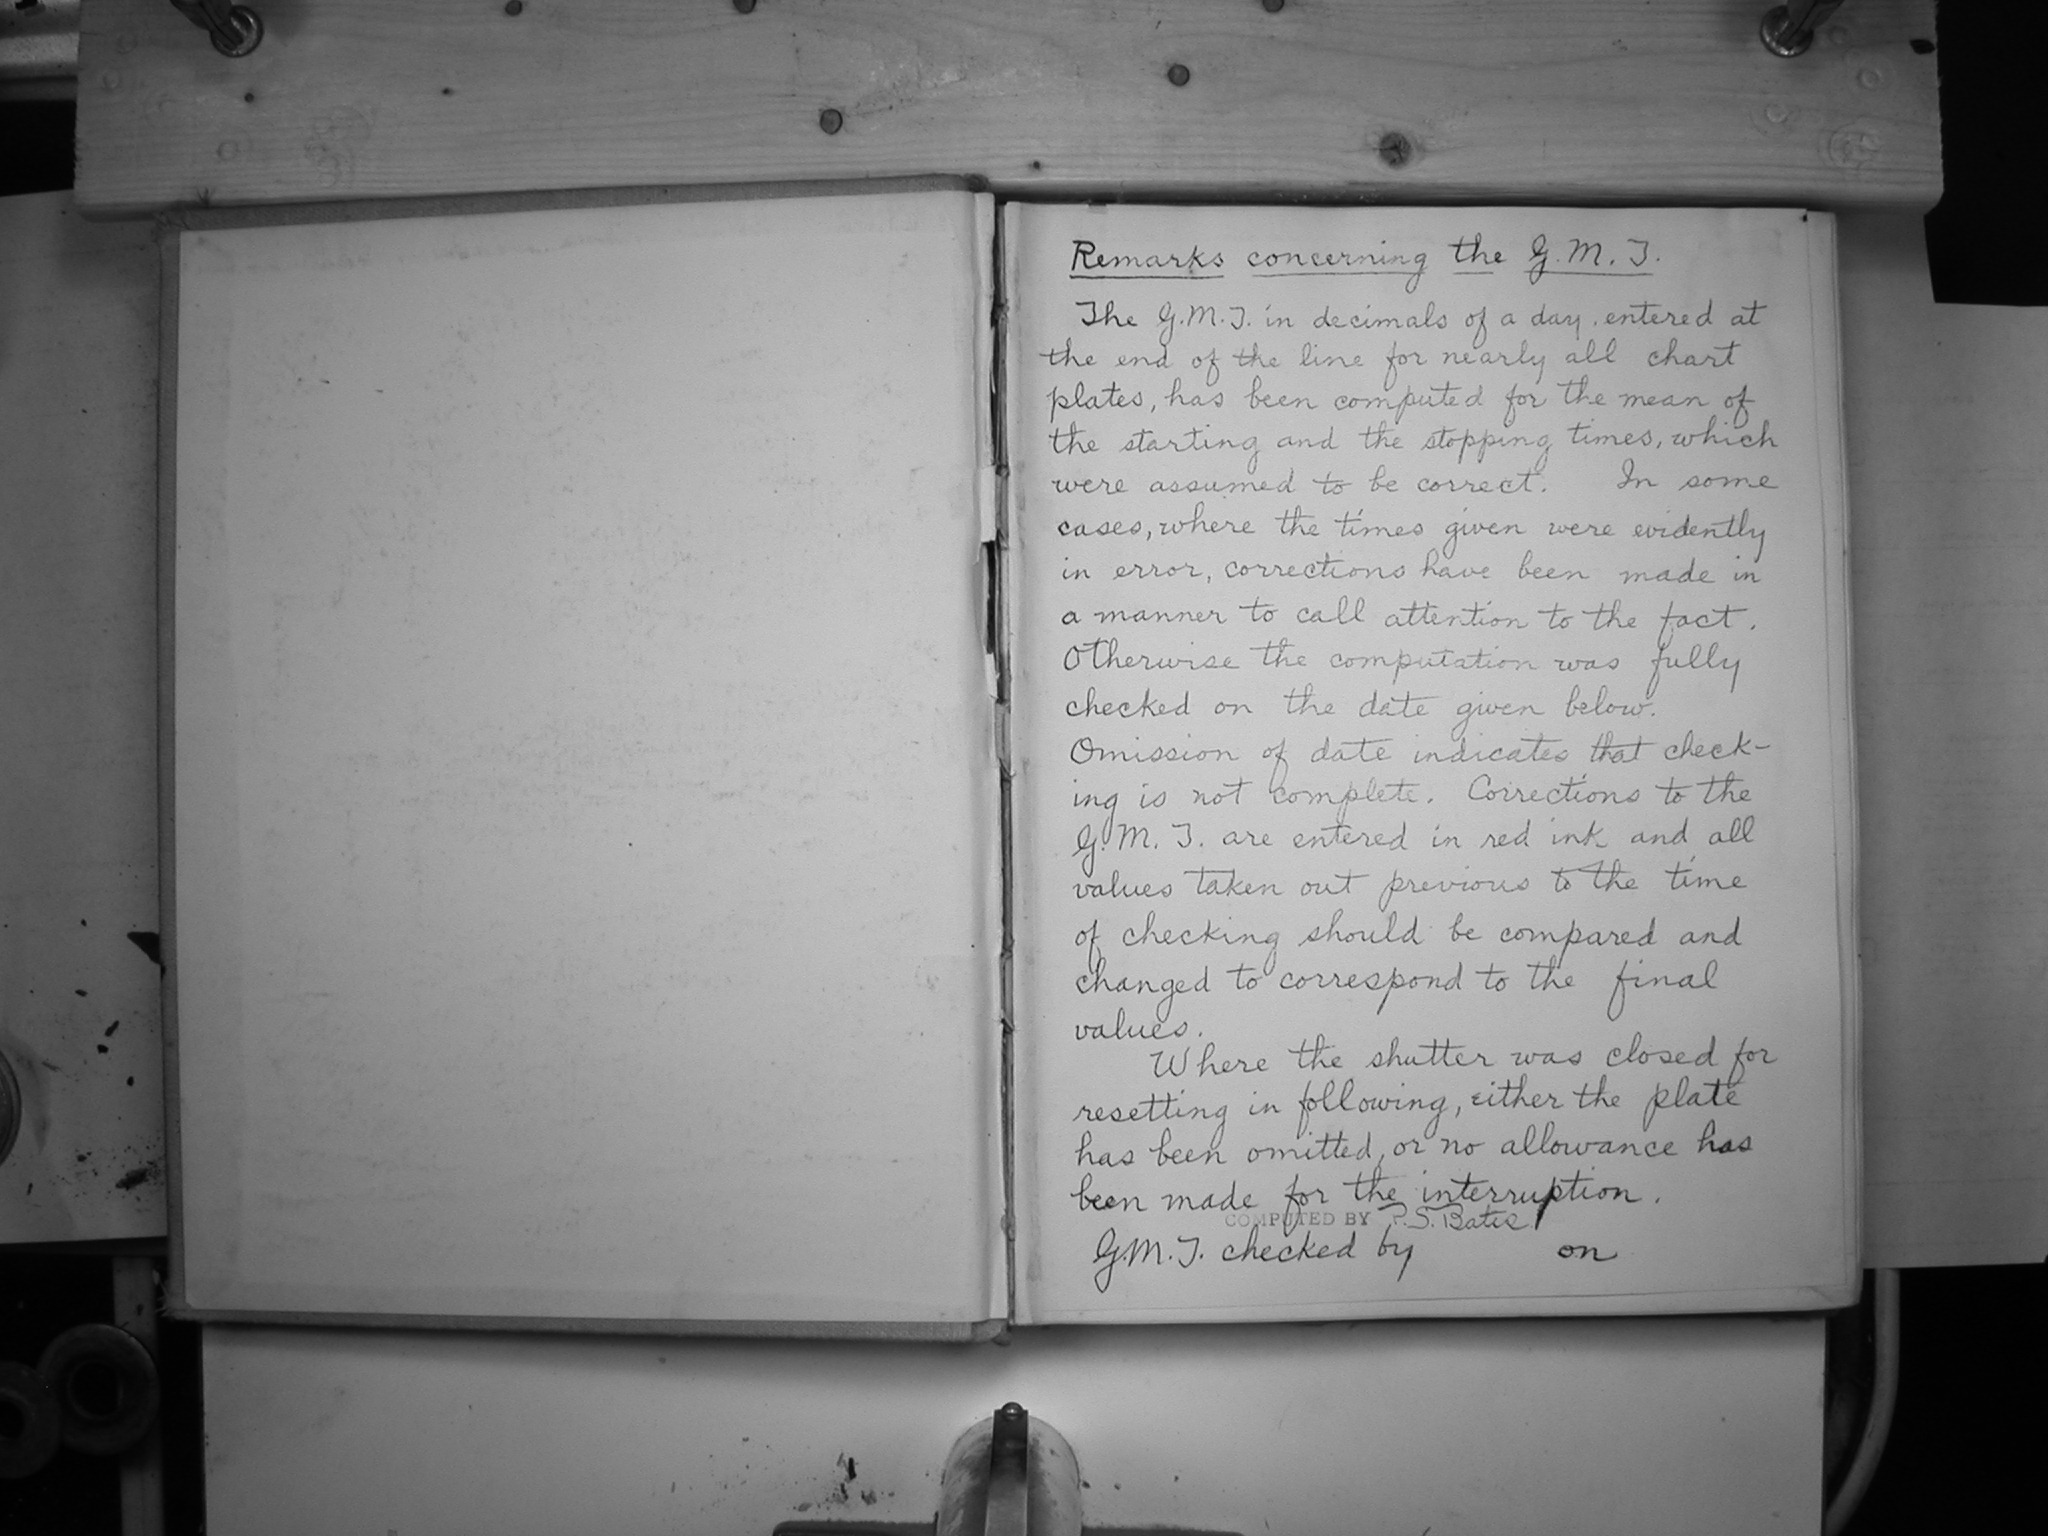 Remarks concerning the G.M.T.
The G.M.T. in decimals of a day, entered at
the end of the line for nearly all chart
plates, has been computed for the mean of
the starting and the stopping times, which
were assumed to be correct. In some
cases, where the times given were evidently
in error, corrections have been made in
a manner to call attention to the fact.
Otherwise the computation was fully
checked on the date given below.
Omission of date indicates that check-
ing is not complete. Corrections to the
G.M.T. are entered in red ink and all
values taken out previous to the time
of checking should be compared and
changed to correspond to the final
values.
Where the shutter was closed for
resetting in following, either the plate
has been omitted, or no allowance has
been made for the interruption.
COMPUTED BY P.S. Bates
G.M.T. checked by on